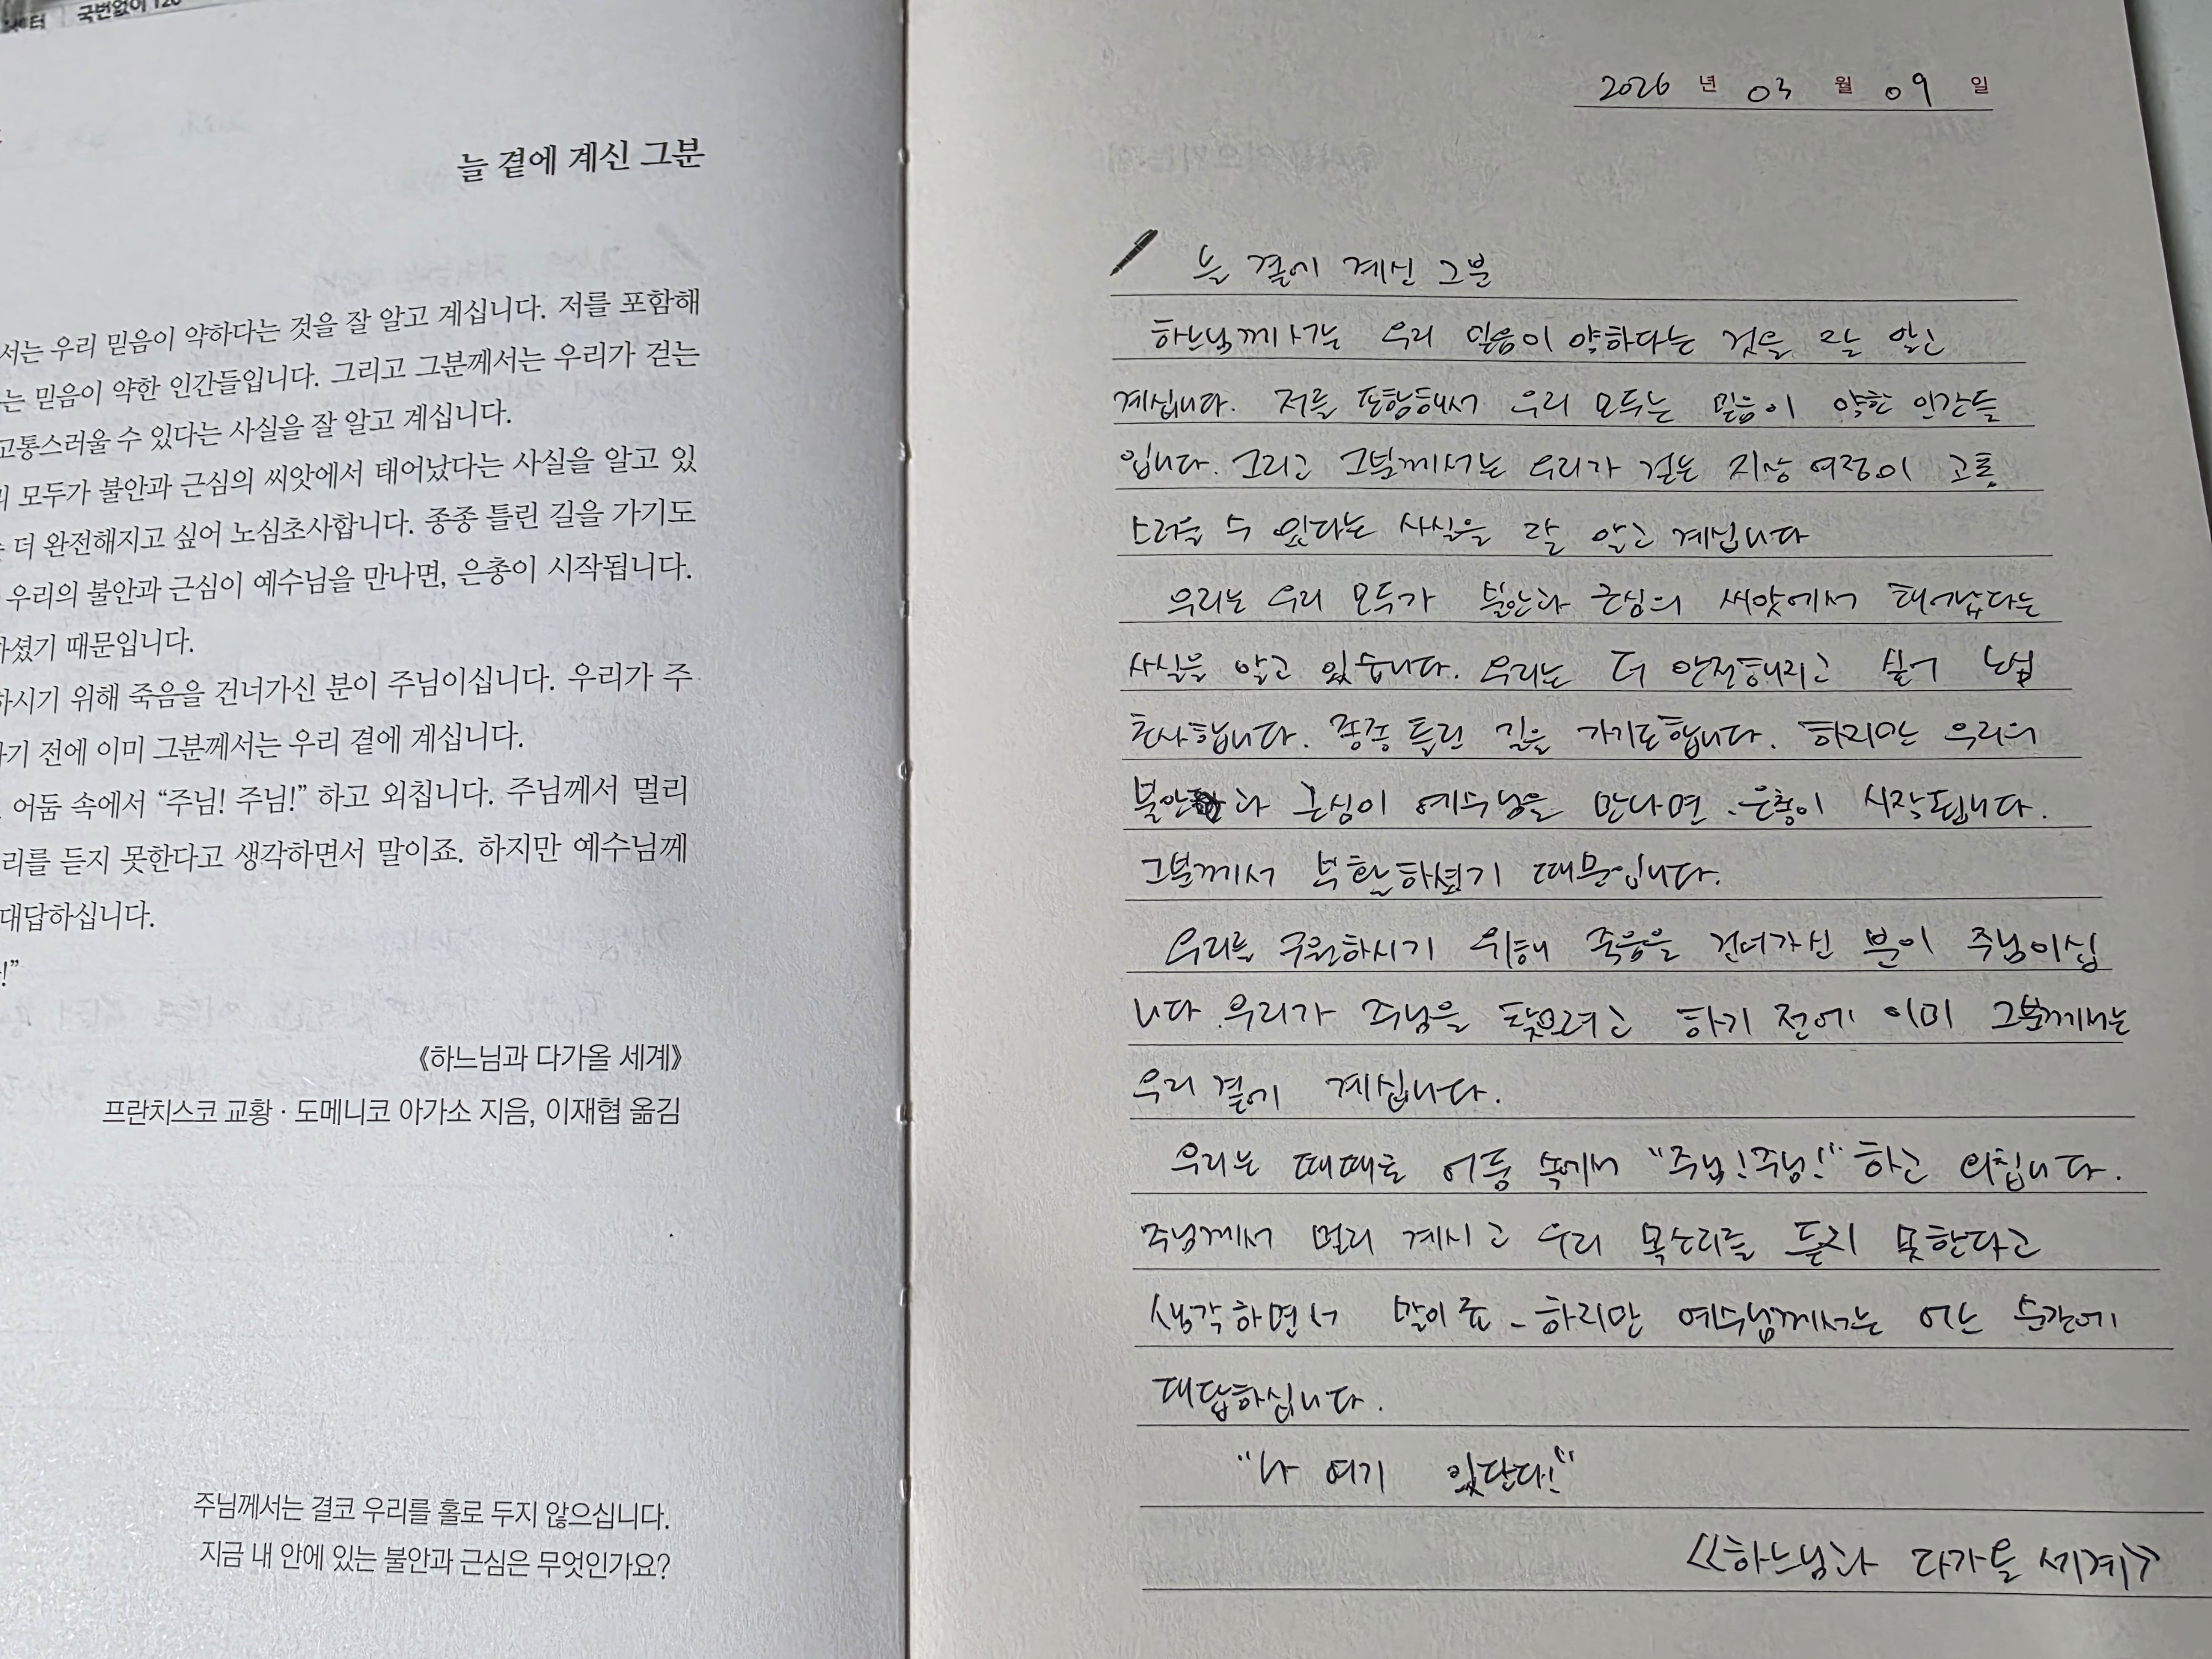 국번없이 120
늘 곁에 계신 그분
서는 우리 믿음이 약하다는 것을 잘 알고 계십니다. 저를 포함해
는 믿음이 약한 인간들입니다. 그리고 그분께서는 우리가 걷는
고통스러울 수 있다는 사실을 잘 알고 계십니다.
모두가 불안과 근심의 씨앗에서 태어났다는 사실을 알고 있
더 완전해지고 싶어 노심초사합니다. 종종 틀린 길을 가기도
우리의 불안과 근심이 예수님을 만나면, 은총이 시작됩니다.
하셨기 때문입니다.
하시기 위해 죽음을 건너가신 분이 주님이십니다. 우리가 주
하기 전에 이미 그분께서는 우리 곁에 계십니다.
어둠 속에서 “주님! 주님!” 하고 외칩니다. 주님께서 멀리
리를 듣지 못한다고 생각하면서 말이죠. 하지만 예수님께
대답하십니다.
!”
《하느님과 다가올 세계》
프란치스코 교황 · 도메니코 아가소 지음, 이재협 옮김
주님께서는 결코 우리를 홀로 두지 않으십니다.
지금 내 안에 있는 불안과 근심은 무엇인가요?
2026 년 03 월 09 일
늘 곁에 계신 그분
하느님께서는 우리 믿음이 약하다는 것을 잘 알고
계십니다. 저를 포함해서 우리 모두는 믿음이 약한 인간들
입니다. 그리고 그분께서는 우리가 걷는 지상 여정이 고통
스러울 수 있다는 사실을 잘 알고 계십니다
우리는 우리 모두가 불안과 근심의 씨앗에서 태어났다는
사실을 알고 있습니다. 우리는 더 안전해지고 싶어 노심
초사합니다. 종종 틀린 길을 가기도합니다. 하지만 우리의
불안과 근심이 예수님을 만나면, 은총이 시작됩니다.
그분께서 부활하셨기 때문입니다.
우리를 구원하시기 위해 죽음을 건너가신 분이 주님이십
니다. 우리가 주님을 찾으려고 하기 전에 이미 그분께서는
우리 곁에 계십니다.
우리는 때때로 어둠 속에서 "주님! 주님!" 하고 외칩니다.
주님께서 멀리 계시고 우리 목소리를 듣지 못한다고
생각하면서 말이죠. 하지만 예수님께서는 어느 순간에
대답하십니다.
"나 여기 있단다!"
《하느님과 다가올 세계》